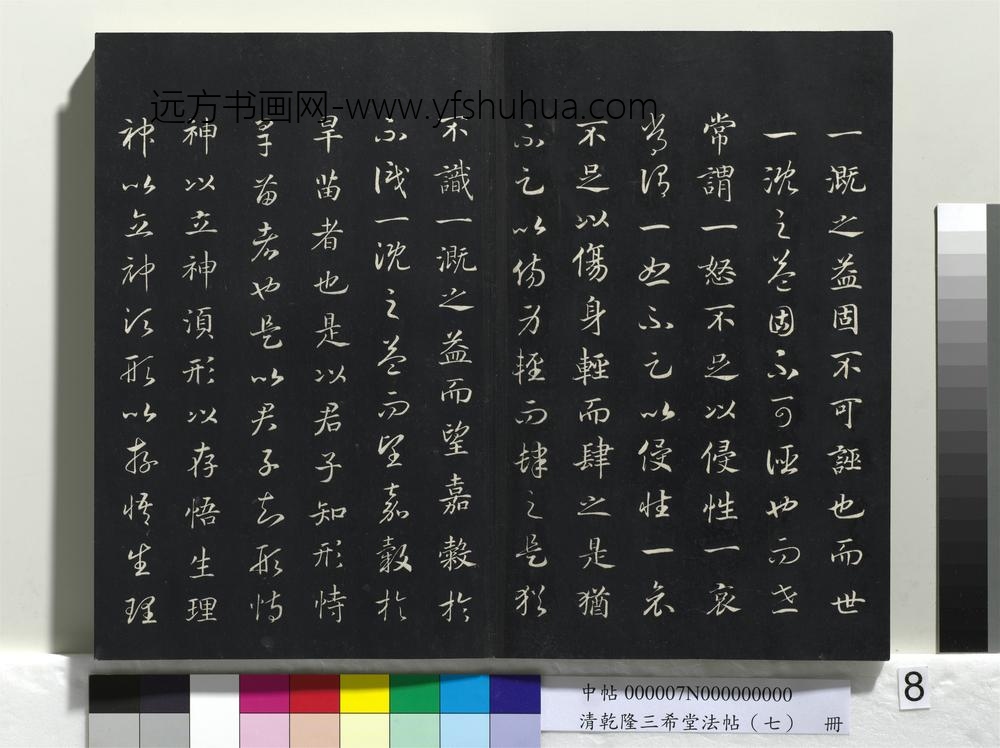 远方书画网-www.yfshuhua.com
一溉之益固不可誣也而世
一溉之益固不可誣也而世
常謂一怒不足以侵性一哀
常謂一怒不足以侵性一哀
不足以傷身輕而肆之是猶
不足以傷身輕而肆之是猶
不識一溉之益而望嘉穀於
不識一溉之益而望嘉穀於
旱苗者也是以君子知形恃
旱苗者也是以君子知形恃
神以立神湏形以存悟生理
神以立神須形以存悟生理
中帖 000007N000000000
清乾隆三希堂法帖（七） 冊
8